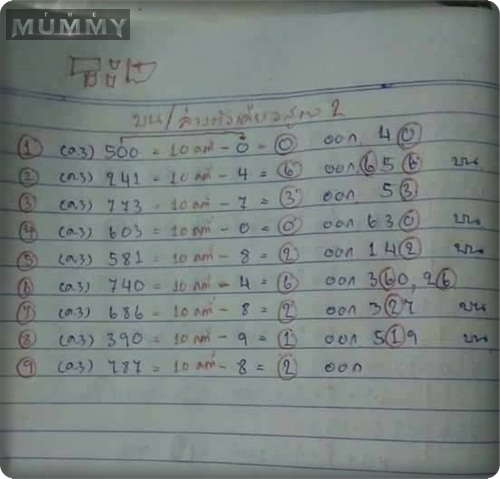 THE
MUMMY
บน/ล่างตัวเดียวสูตร 2
① (ล.3) 500 = 10 ลบ - 0 = 0 ออก 40
② (ล.3) 941 = 10 ลบ - 4 = 6 ออก 656 บน
③ (ล.3) 773 = 10 ลบ - 7 = 3 ออก 53
④ (ล.3) 603 = 10 ลบ - 0 = 0 ออก 630 บน
⑤ (ล.3) 581 = 10 ลบ - 8 = 2 ออก 142 บน
⑥ (ล.3) 740 = 10 ลบ - 4 = 6 ออก 360, 26
⑦ (ล.3) 686 = 10 ลบ - 8 = 2 ออก 327 บน
⑧ (ล.3) 390 = 10 ลบ - 9 = 1 ออก 519 บน
⑨ (ล.3) 787 = 10 ลบ - 8 = 2 ออก